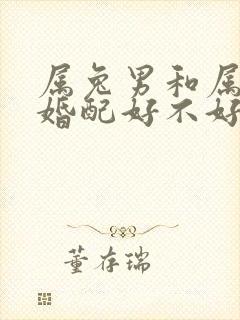 属兔男和属
婚配好不好
董存瑞